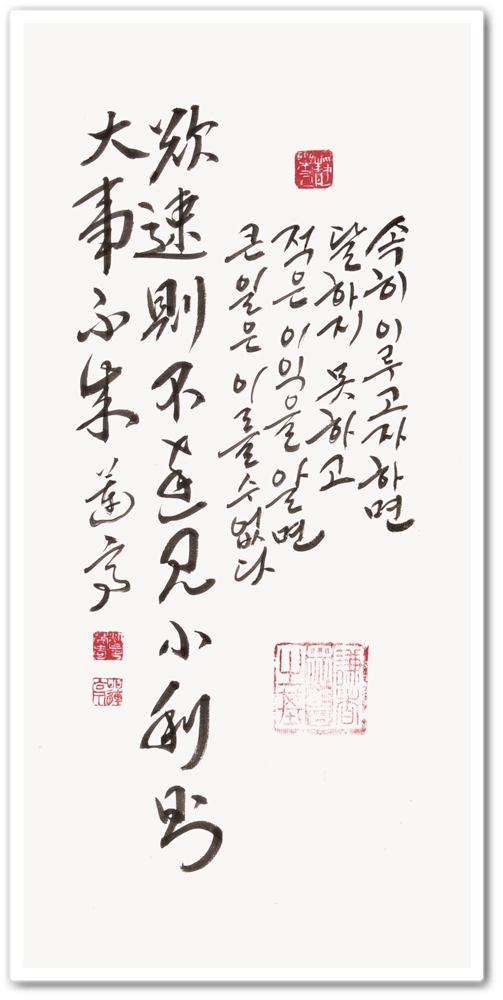 속히 이루고자하면
달하지 못하고
적은 이익을 알면
큰일은 이룰수없다
謙者
衆善
之基
欲速則不達見小利則
大事不成 蓮亭